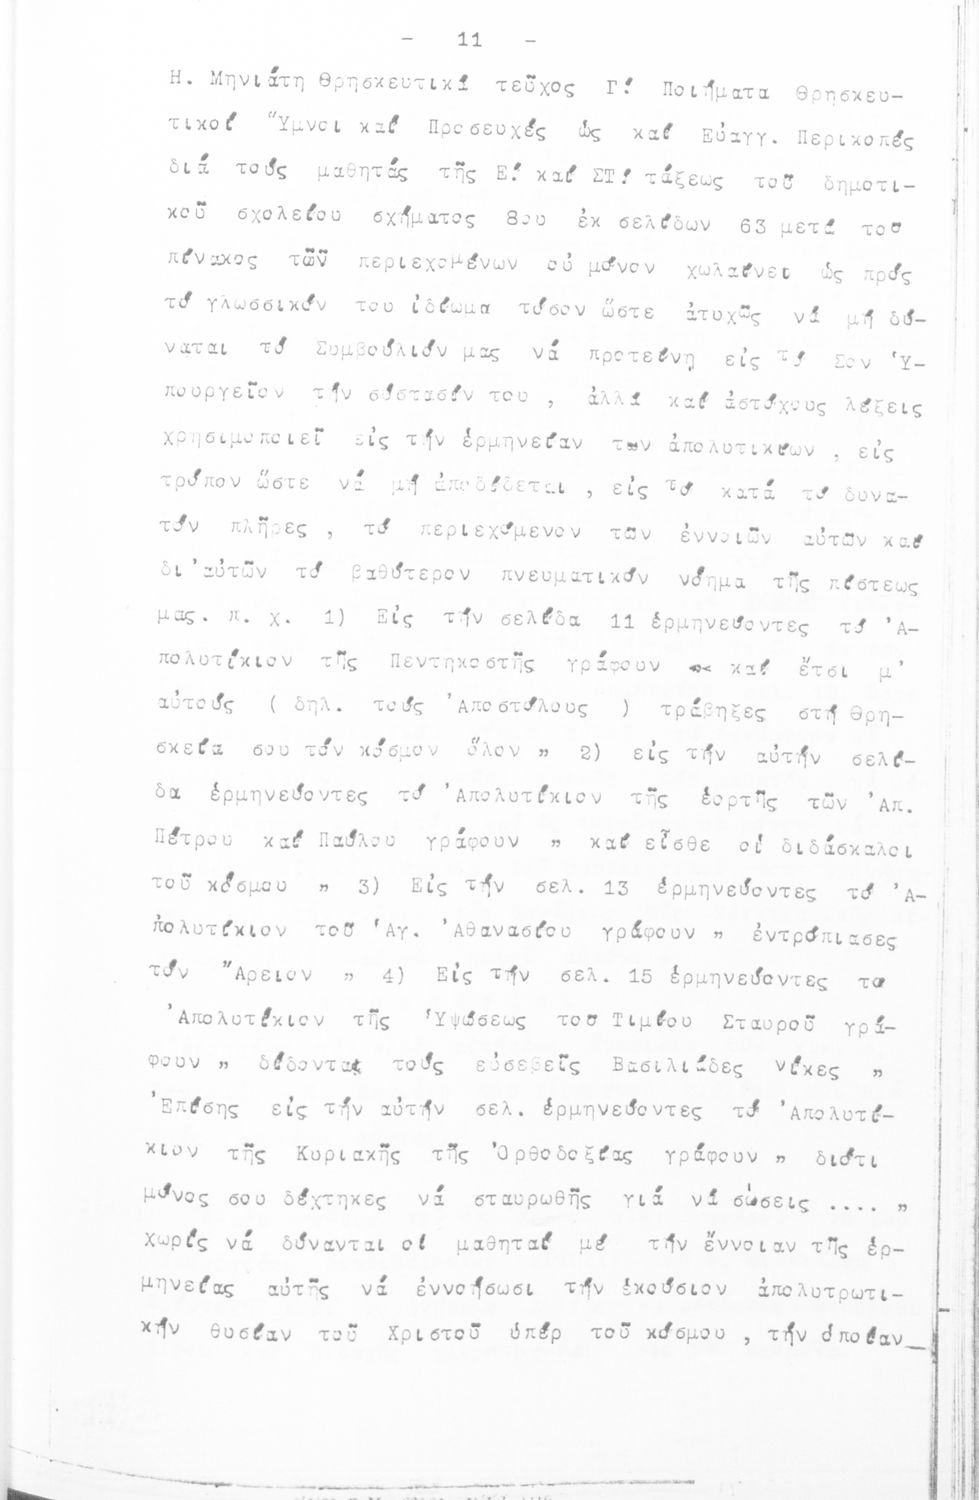 - 11 -
Η. Μηνιάτη Θρησκευτικά τεῦχος Γ! Ποιήματα Θρησκευ-
τικοί Ὕμνοι καί Προσευχές ὡς καί Εὐαγγ. Περικοπές
διά τούς μαθητάς τῆς Ε! καί ΣΤ! τάξεως τοῦ δημοτι-
κοῦ σχολείου σχήματος 8ου ἐκ σελίδων 63 μετά τοῦ
πίνακος τῶν περιεχομένων οὐ μόνον χωλαίνει ὡς πρός
τό γλωσσικόν του ἰδίωμα τόσον ὥστε ἀτυχῶς νά μή δύ-
ναται τό Συμβούλιόν μας νά προτείνῃ εἰς τό Σον Ὑ-
πουργεῖον τήν σύστασίν του , ἀλλά καί ἀστόχους λέξεις
χρησιμοποιεῖ εἰς τήν ἑρμηνείαν τῶν ἀπολυτικίων , εἰς
τρόπον ὥστε νά μή ἀποδίδεται , εἰς τό κατά τό δυνα-
τόν πλῆρες , τό περιεχόμενον τῶν ἐννοιῶν αὐτῶν καί
δι'αὐτῶν τό βαθύτερον πνευματικόν νόημα τῆς πίστεως
μας. π. χ. 1) Εἰς τήν σελίδα 11 ἑρμηνεύοντες τό Ἀ-
πολυτίκιον τῆς Πεντηκοστῆς γράφουν « καί ἔτσι μ'
αὐτούς ( δηλ. τούς Ἀποστόλους ) τράβηξες στή Θρη-
σκεία σου τόν κόσμον ὅλον " 2) εἰς τήν αὐτήν σελί-
δα ἑρμηνεύοντες τό Ἀπολυτίκιον τῆς ἑορτῆς τῶν Ἀπ.
Πέτρου καί Παύλου γράφουν " καί εἶσθε οἱ διδάσκαλοι
τοῦ κόσμου " 3) Εἰς τήν σελ. 13 ἑρμηνεύοντες τό Ἀ-
πολυτίκιον τοῦ Ἁγ. Ἀθανασίου γράφουν " ἐντρόπιασες
τόν Ἄρειον " 4) Εἰς τήν σελ. 15 ἑρμηνεύοντες το
Ἀπολυτίκιον τῆς Ὑψώσεως τοῦ Τιμίου Σταυροῦ γρά-
φουν " δίδοντας τούς εὐσεβεῖς Βασιλιάδες νίκες "
Ἐπίσης εἰς τήν αὐτήν σελ. ἑρμηνεύοντες τό Ἀπολυτί-
κιον τῆς Κυριακῆς τῆς Ὀρθοδοξίας γράφουν " διότι
μόνος σου δέχτηκες νά σταυρωθῆς γιά νά σώσεις .... "
χωρίς νά δύνανται οἱ μαθηταί μέ τήν ἔννοιαν τῆς ἑρ-
μηνείας αὐτῆς νά ἐννοήσωσι τήν ἑκούσιον ἀπολυτρωτι-
κήν θυσίαν τοῦ Χριστοῦ ὑπέρ τοῦ κόσμου , τήν ὁποίαν